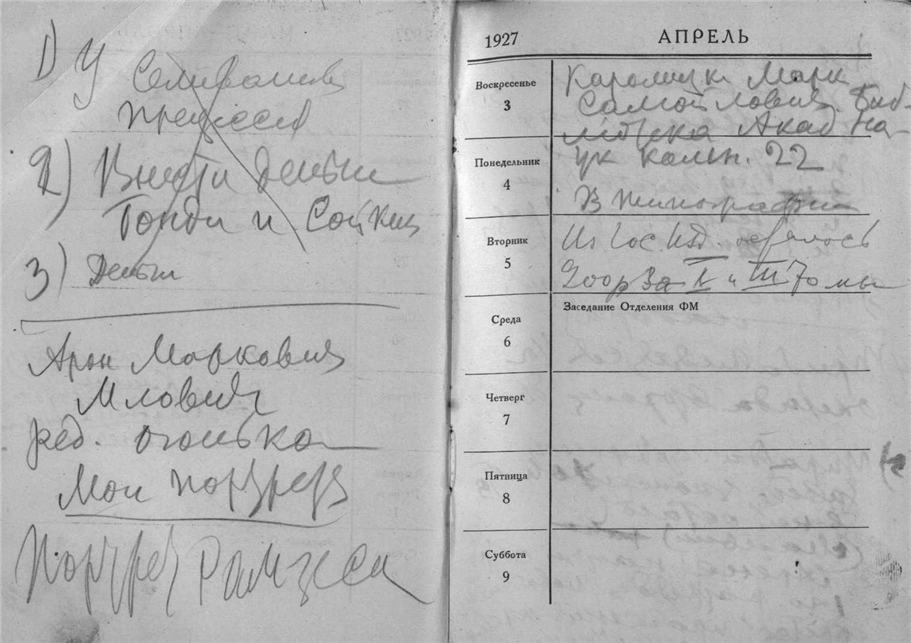 1) У Селиванов
процессы
2) Внести деньги
Гонди и Сойкин
3) Деньги
Арон Маркович
ред. огонька
Мои портреты
Портрет Рамзеса
1927 АПРЕЛЬ
Воскресенье
3
Марк
Самойлович. Биб-
лиотека Акад На-
Понедельник
4
ук комн. 22
В типографии
Вторник
5
Из Гос Изд. осталось
700 р за II и III томы
Среда
6
Заседание Отделения ФМ
Четверг
7
Пятница
8
Суббота
9